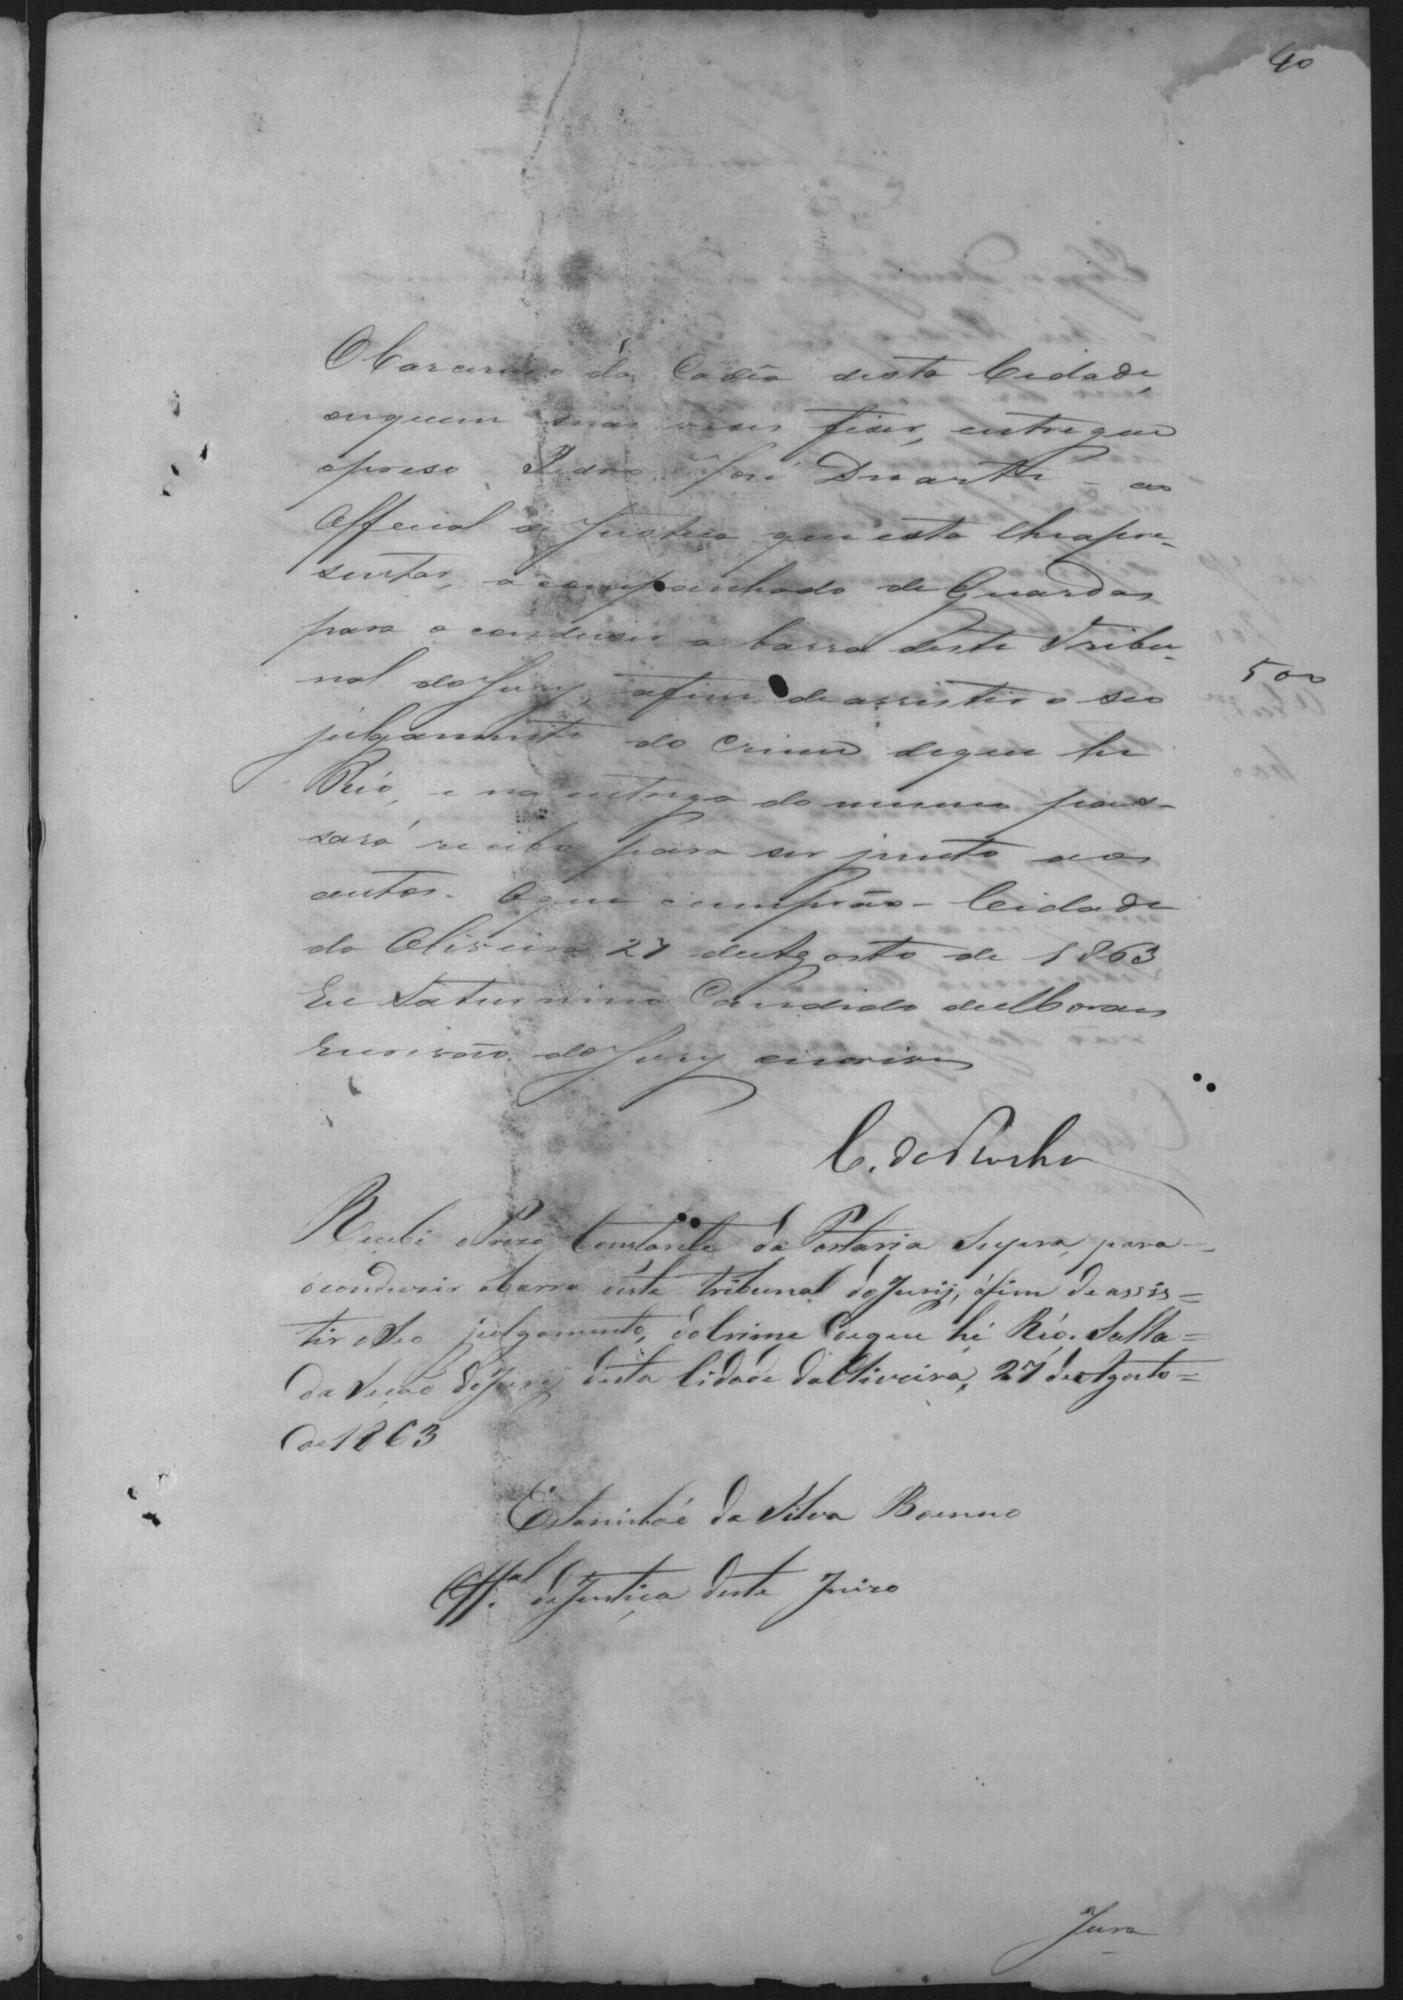 40
O Carcereiro da Cadêa desta Cidade,
ou quem suas vezes fizer, entregue
o preso Pedro José Duarte - ao
Official de Justica que esta lhe apre-
sentar, acompanhado de Guardas
para o conduzir a barra deste Tribu-
nal do Jury, afim de assistir o seo
julgamento do crime de que he
Réo, e na entrega do mesmo pas-
sará recibo para ser junto aos
autos. O que cumprão - Cidade
da Oliveira 27 de Agosto de 1863
Eu Saturnino Candido de Moraes
Escrivão do Jury escrevi
500
C. da Rocha
Recebi o Prezo Constante da Portaria Supra, para
o conduzir abarra deste tribunal do Jury, áfim de assis=
tir o Seo julgamento, do Crime de que hé Réo. Salla=
da do Jury desta Cidade da Oliveira, 27 de Agosto=
de 1863
da Silva Boenno
Off.al de Justiça deste Juizo
Jura